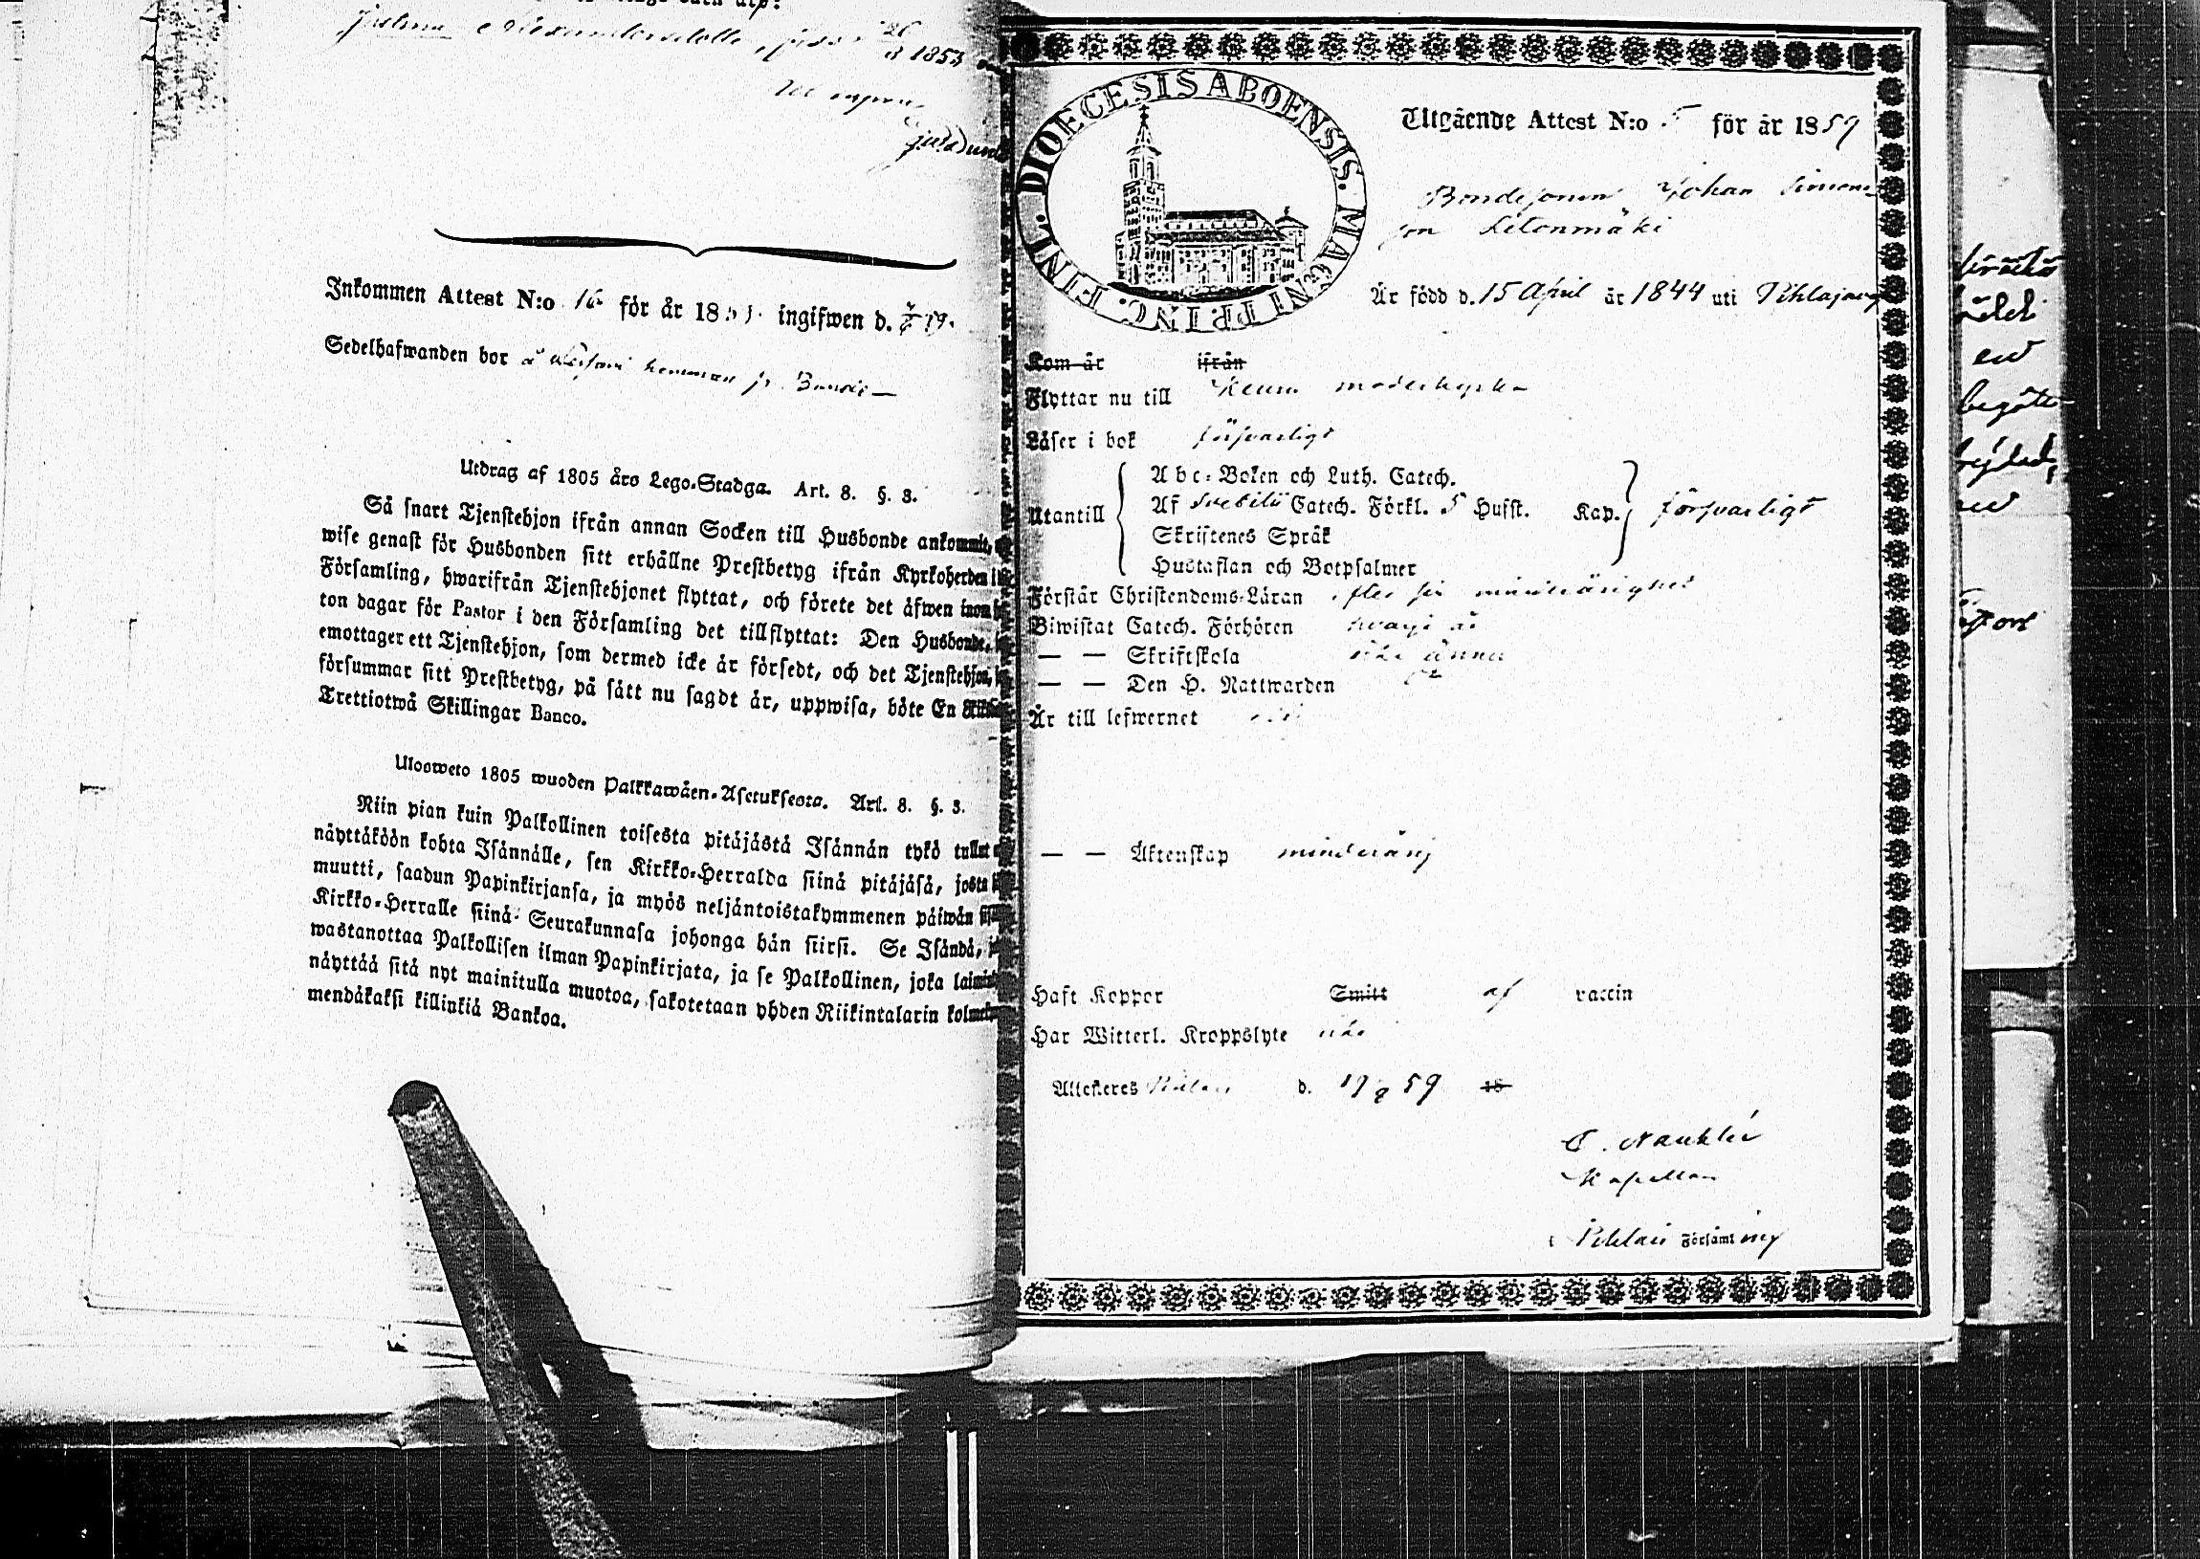 1853
Inkommen Attest N:o 16 för år 185 ingifwen d.
Sedelhafwanden bor å hemman
Utdrag af 1805 års Lego-Stadga. Art. 8. §. 3.
Så snart Tjenstehjon ifrån annan Socken till Husbonde ankommit,
wise genast för Husbonden sitt erhållne Prestbetyg ifrån Kyrkoherden i
Församling, hwarifrån Tjenstehjonet flyttat, och förete det äfwen inom
ton dagar för Pastor i den Församling det tillflyttat: Den Husbonde,
emottager ett Tjenstehjon, som dermed icke är försedt, och det Tjenstehjon,
försummar sitt Prestbetyg, på sätt nu sagdt är, uppwisa, böte En
Trettiotwå Skillingar Banco.
Ulosweto 1805 wuoden Palkkawäen-Asetuksesta. Art. 8. §. 3.
Niin pian kuin Palkollinen toisesta pitäjästä Isännän tykö tullut
näyttäköön kohta Isännälle, sen Kirkko-Herralda siinä pitäjäsä, josta
muutti, saadun Papinkirjansa, ja myös neljäntoistakymmenen päiwän
Kirkko-Herralle siinä Seurakunnasa johonga hän siirsi. Se Isändä,
wastanottaa Palkollisen ilman Papinkirjata, ja se Palkollinen, joka
näyttää sitä nyt mainitulla muotoa, sakotetaan yhden Riikintalarin
mendäkaksi killinkiä Bankoa.
DIOECESIS ABOENSIS. MAGNI PRINC. FINL.
Utgående Attest N:o 5 för år 1859
Bondesonen Johan Simons-
son Letonmäki
Är född d. 15 April år 1844 uti Pihlajavesi
Kom år ifrån
Flyttar nu till Keuru moderkyrka
Läser i bok försvarligt
Abc-Boken och Luth. Catech.
Utantill Af Svebilii Catech. Förkl. 5 Hufst. Kap. försvarligt
Skriftenes Språk
Hustaflan och Botpsalmer
Förstår Christendoms-Läran efter sin minderårighet
Biwistat Catech. Förhören hvarje år
— — Skriftskola icke ännu
— — Den H. Nattwarden
Är till lefwernet
— — Äktenskap minderårig
Haft Koppor Smitt af vaccin
Har Witterl. Kroppslyte icke
Attesteres d. 19 59 18
Kapellan
Församling